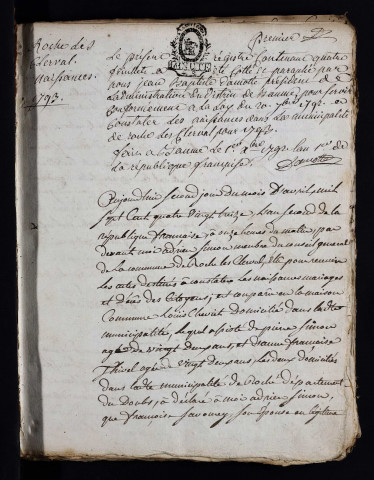 Roche des
Clerval
Naissances.
1793.
premier
Le présent registre Contenant quatre
feuillets a été Cotté et paraphé par
nous jean Baptiste Damotte président de
L'administration du District de Baume pour servir
conformement a la Loy du 20. 7bre 1792. a
Constater les naissances dans la municipalité
de roche les Clerval pour 1793.
fait a Baume le 1er Xbre 1792. l'an 1er de
La république française. Damotte
Aujourdhui second jour du mois D'avril mil
sept Cent quatre vingt treize L'an second de la
république francaise, à onze heures du matin par
devant moi adrien simon membre du conseil general
de La commune de Roche les Clerval, elu pour recevoir
Les actes destinés à constater les naissances mariages
et décés des Citoyens, est comparu en la maison
Commune Louis Clerc domicilié dans ladte
municipalité, lequel assisté de pierre simon
agé de vingt deux ans, et Jeanne françoise
Thirel agée de vingt deux ans, les deux domiciliés
dans ladte municipalité de Roche département
du Doubs, a déclaré à moi adrien simon,
que françoise son Epouse en légitime